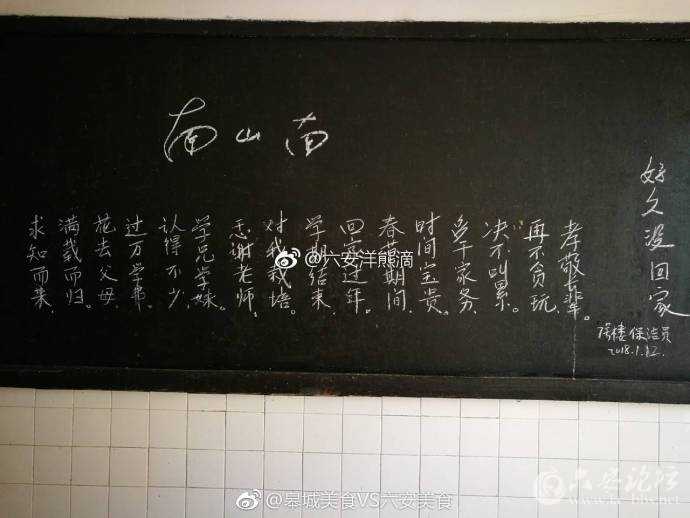 南山南
求知而来,
满载而归。
花去父母
过万学费.
认得不少,
学兄学妹.
感谢老师,
对我栽培。
学期结束,
回家过年。
春节期间,
时间宝贵。
多干家务,
决不叫累。
再不贪玩,
孝敬长辈。
好久没回家
号楼保洁员
2018.1.12.
@六安洋熊滴
@皋城美食VS六安美食
六安论坛